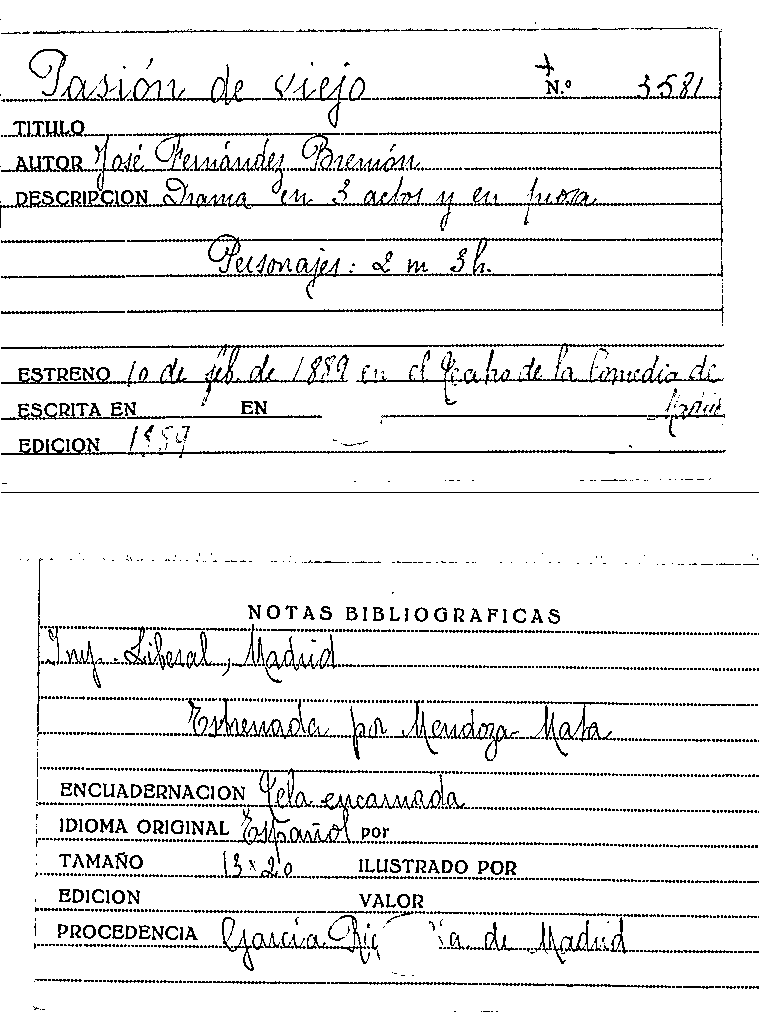 Pasión de viejo N.º 3581
TITULO
AUTOR José Fernández Bremón
DESCRIPCION Drama en 3 actos y en prosa
Personajes: 2 m 3 h.
ESTRENO 10 de feb. de 1889 en el Teatro de la Comedia de
ESCRITA EN EN Madrid
EDICION 1889
NOTAS BIBLIOGRAFICAS
Imp. Liberal, Madrid
Estrenada por Mendoza-Mata
ENCUADERNACION Tela encarnada
IDIOMA ORIGINAL Español por
TAMAÑO 13 x 20 ILUSTRADO POR
EDICION VALOR
PROCEDENCIA García de Madrid